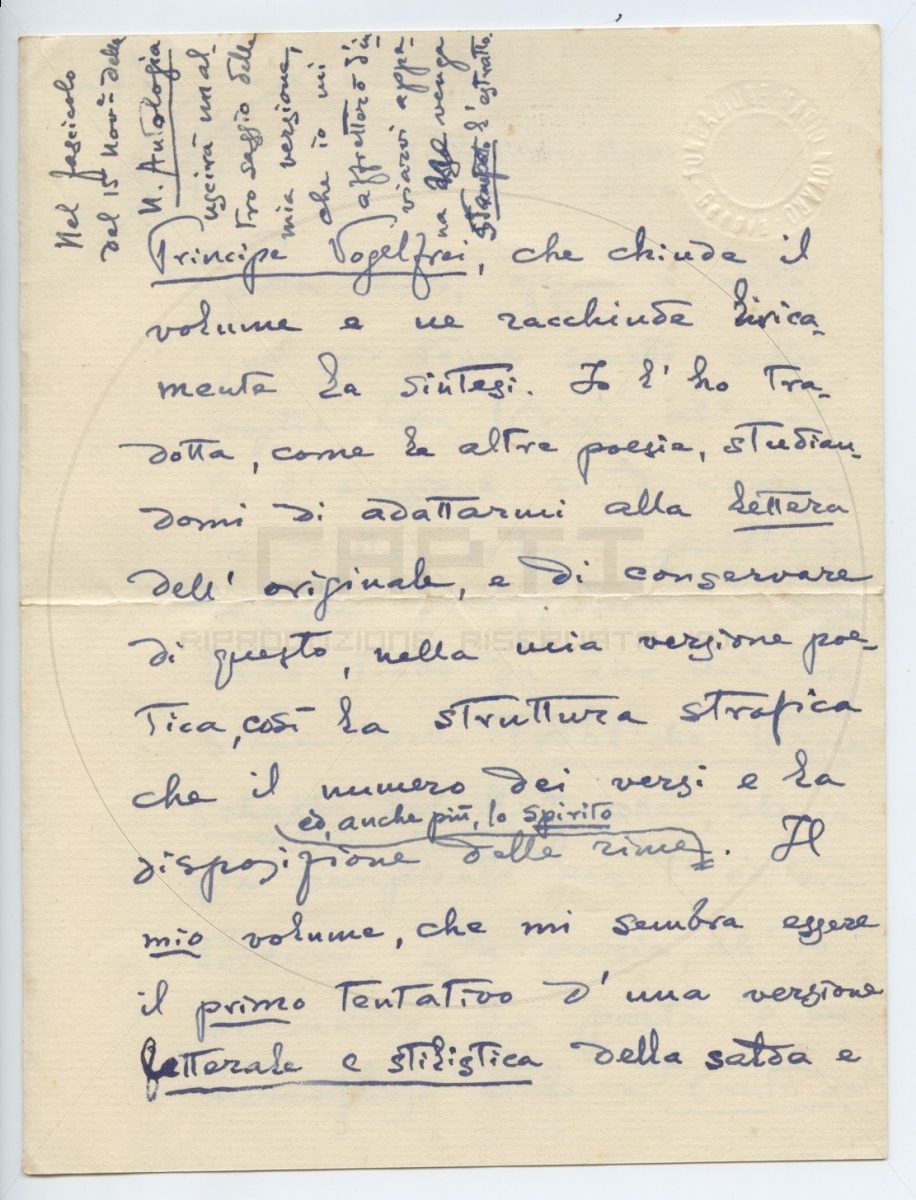 Nel fascicolo
del 15 Nov.e della
N. Antologia
uscirà un al-
tro saggio della
mia versione,
che io mi
affretterò d'in-
viarvi appe-
na venga
stampato l'estratto.
FONDAZIONE MARIO NOVARO
GENOVA
Principe Vogelfrei, che chiude il
volume e ne racchiude lirica-
mente la sintesi. Io l'ho tra-
dotta, come le altre poesie, studian-
domi di adattarmi alla lettera
dell'originale, e di conservare
di questo, nella mia versione poe-
tica, così la struttura strofica
che il numero dei versi e la
ed, anche più, lo spirito
disposizione delle rime. Il
mio volume, che mi sembra essere
il primo tentativo d'una versione
letterale e stilistica della salda e
CAPTI
RIPRODUZIONE RISERVATA